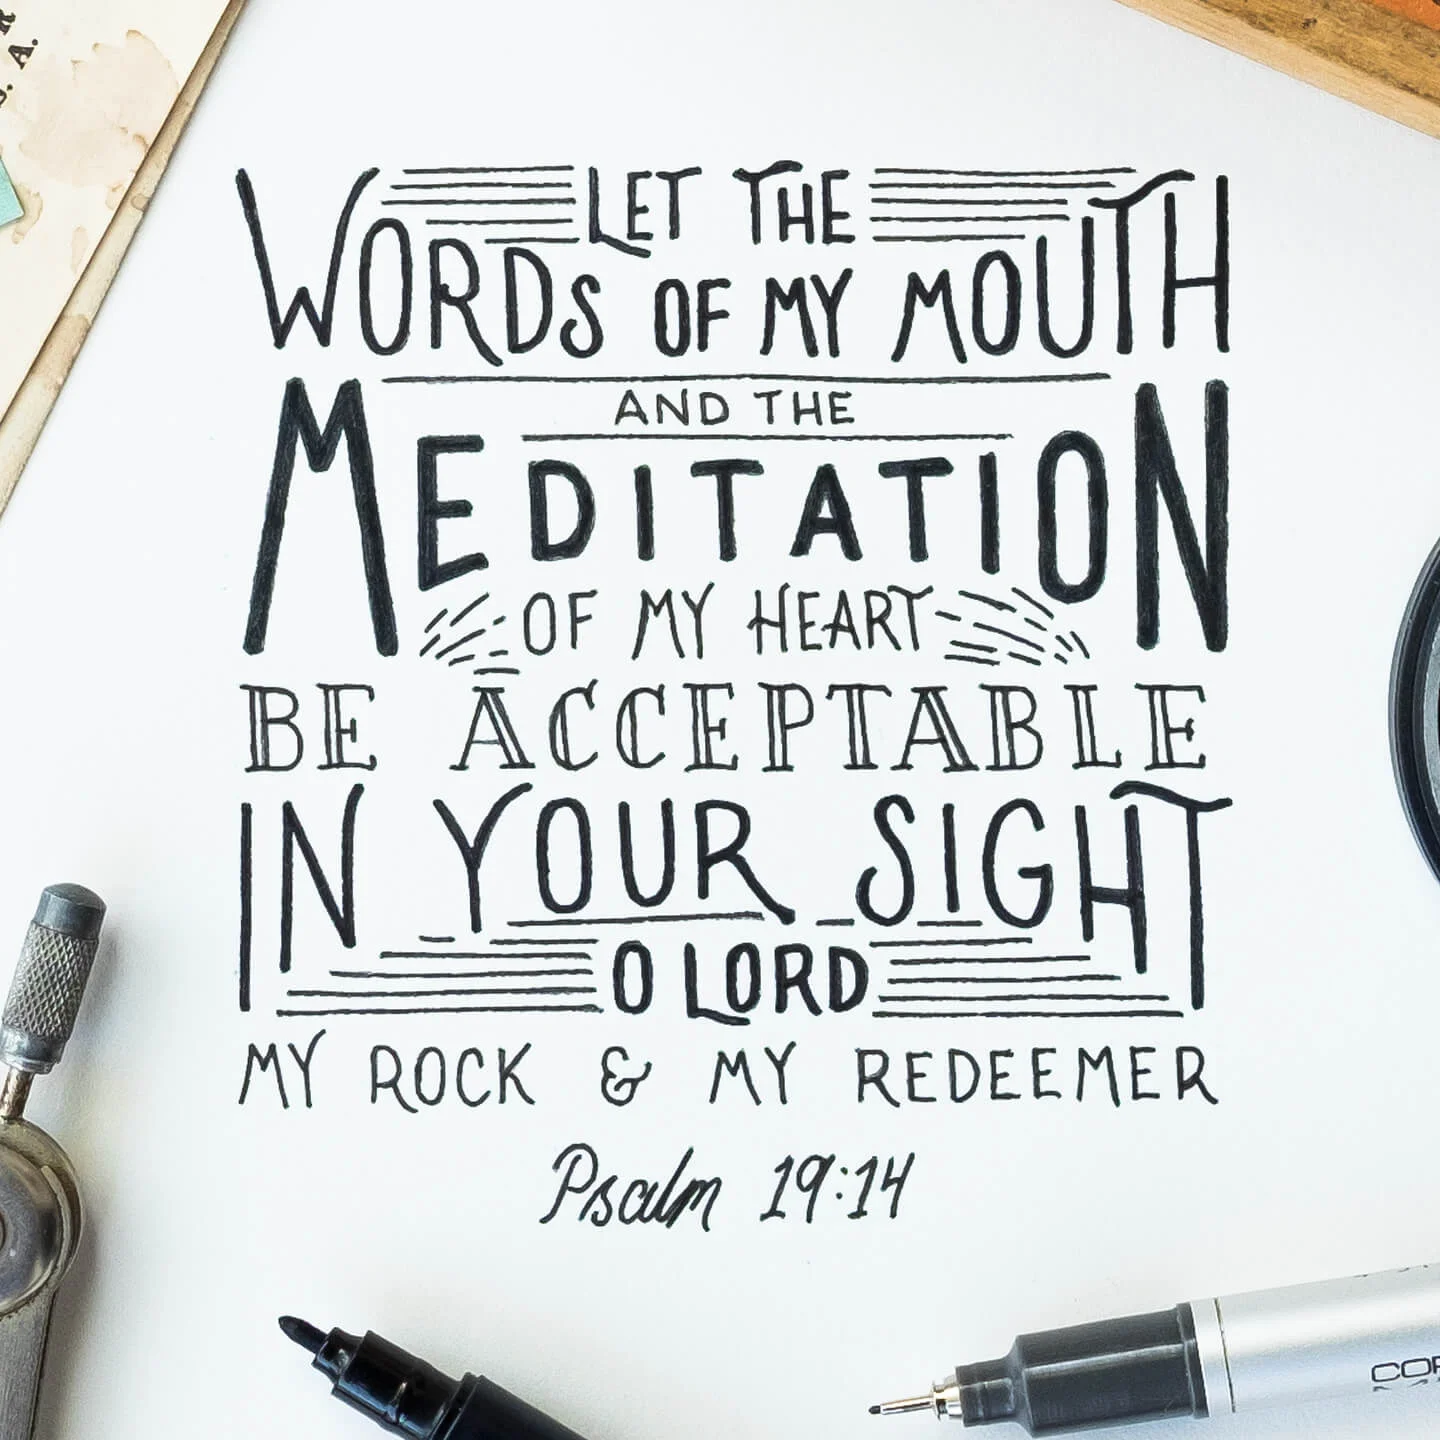 R
S. A.
LET THE
WORDS OF MY MOUTH
AND THE
MEDITATION
OF MY HEART
BE ACCEPTABLE
IN YOUR SIGHT
O LORD
MY ROCK & MY REDEEMER
Psalm 19:14